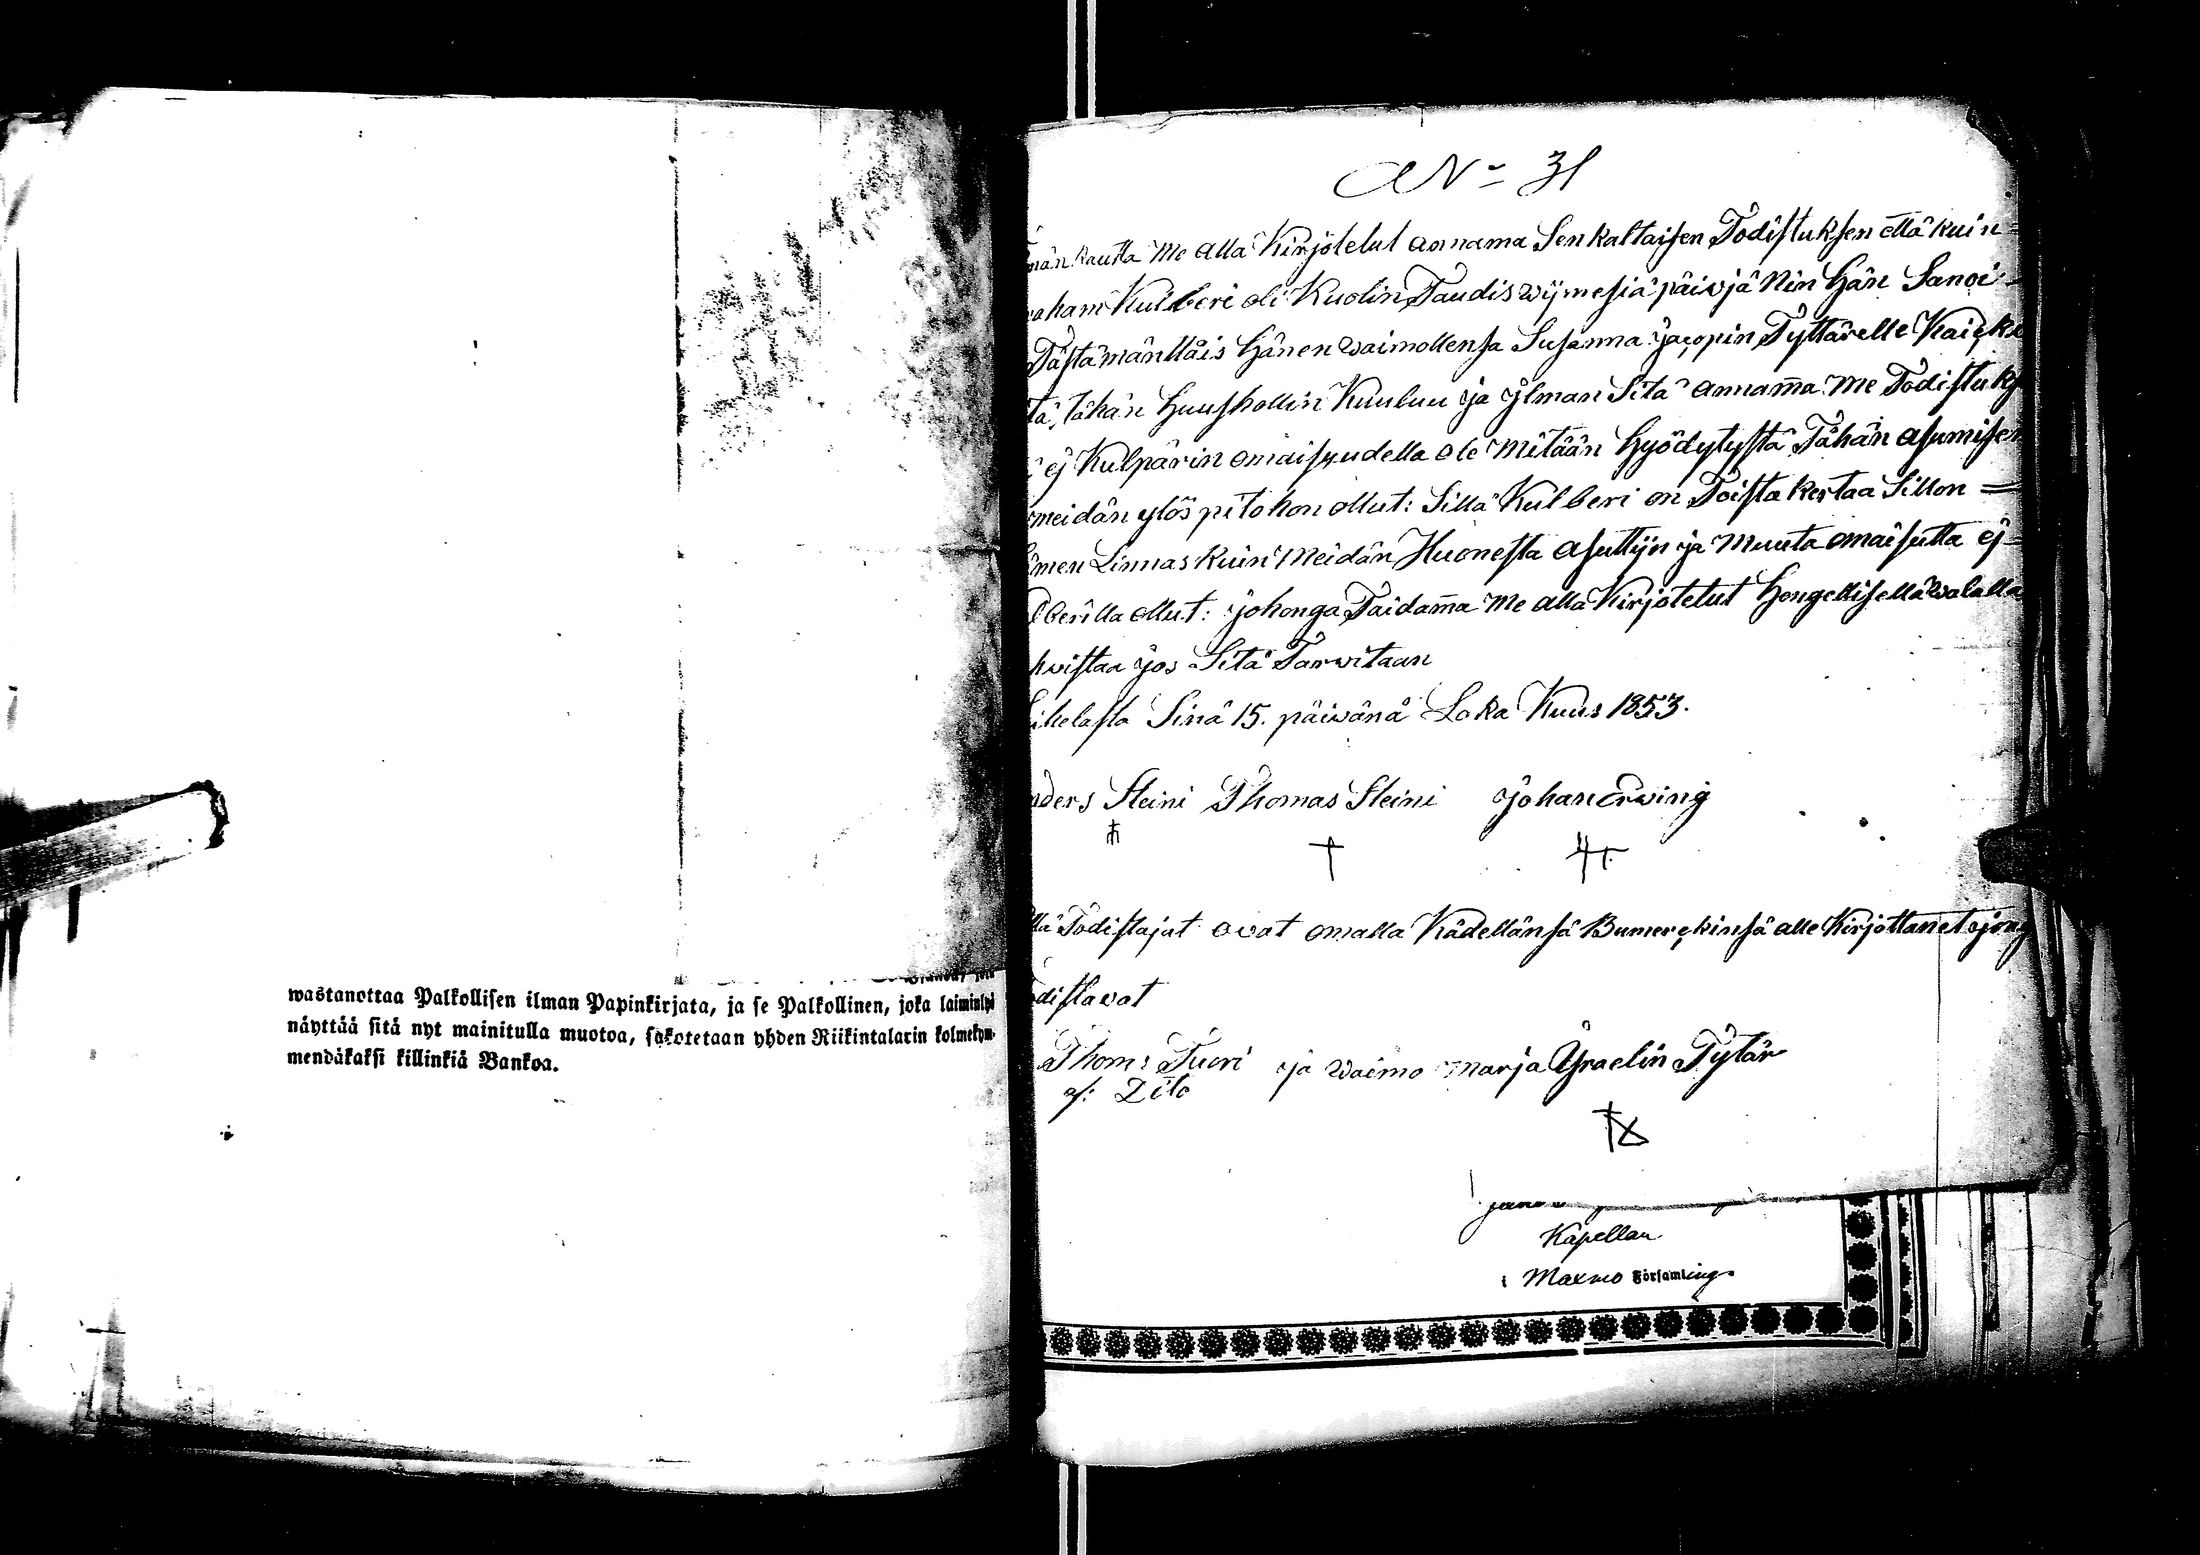 wastanottaa Palkollisen ilman Papinkirjata, ja se Palkollinen, joka laiminlyö
näyttää sitä nyt mainitulla muotoa, sakotetaan yhden Riikintalarin kolmekym-
mendäkaksi killinkiä Bankoa.
No 31
män kautta me alla Kirjotelut annama Senkaltaisen Todistuksen että kuin=
aham Kulberi oli Kuolin Taudis wijmesiä päiwjä Nin Hän Sanoi=
Tästämänttäis Hänen waimollensa Susanna Jacopin Tyttärelle Kaick
tä, tähän Huushollin Kuuluu ja Jlman Sitä annam̅a me Todistuks
ej Kulpärin omaisuudella ole Mitään Hyödytystä Tähän asumisen
meidän ylös pitohon ollut: Sillä Kulberi on Toista kertaa Sillon=
men Linnas Kuin Meidän Huonesta asuttijn ja Muuta omaisutta ej=
lberilla ollut: Johonga Taidam̅a Me alla Kirjotelut Hengellisellä walalla
hwistaa Jos Sitä Tarwitaan
ikelasta Sinä 15. päiwänä Loka Kuus 1853.
nders Steini Thomas Steini Johan Erwing
llä Todistajut owat omalla Kädellänsä Bumerckinsä alle Kirjottanet jong
odistawat
Thom: Tuori ja Waimo Marja Ysraelin Tytär
Kapellan
i Maxmo Församlings